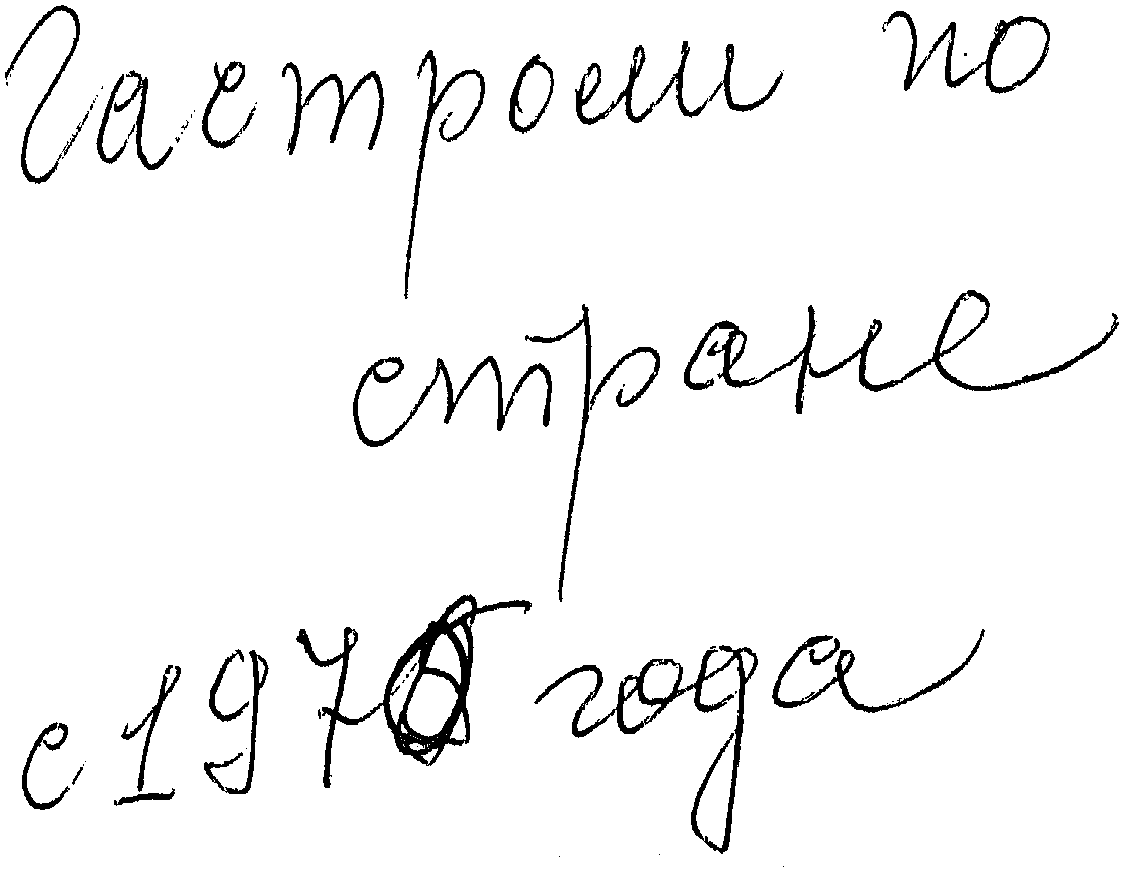 Гастроли по
стране
с 1976 года